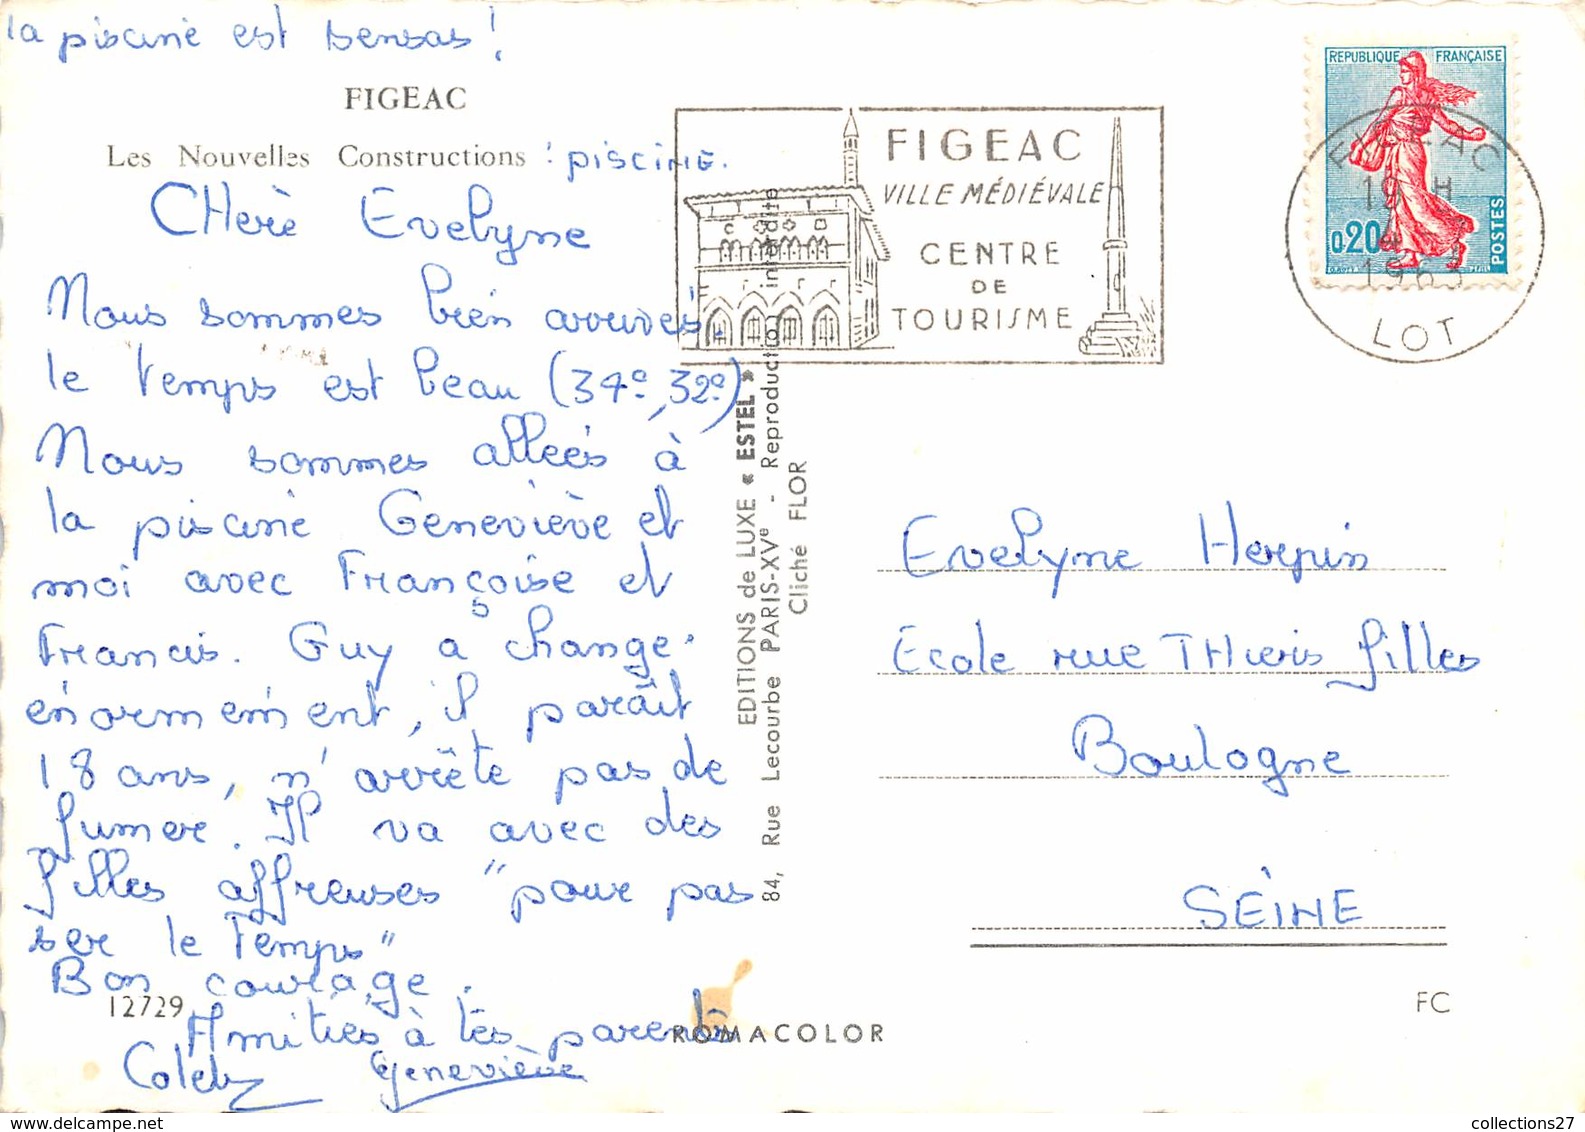 la piscine est sensas !
FIGEAC
Les Nouvelles Constructions : PISCINE.
CHère Evelyne
Nous sommes bien arrivés.
le temps est beau (34°, 32°)
Nous sommes allées à
la piscine Geneviève et
moi avec Françoise et
Francis. Guy a changé
énormément, il paraît
18 ans, n'arrête pas de
fumer. Il va avec des
filles affreuses "pour pas
ser le temps"
Bon courage.
Amitiés à tes parents
Geneviève
12729
ROMACOLOR
EDITIONS de LUXE « ESTEL »
84, Rue Lecourbe PARIS-XVe - Reproduction interdite
Cliché FLOR
FIGEAC
VILLE MÉDIÉVALE
CENTRE
DE
TOURISME
REPUBLIQUE FRANÇAISE
0,20
POSTES
FIGEAC
19 H
LOT
Evelyne Herpin
Ecole rue THiers filles
Boulogne
SEINE
FC
collections27